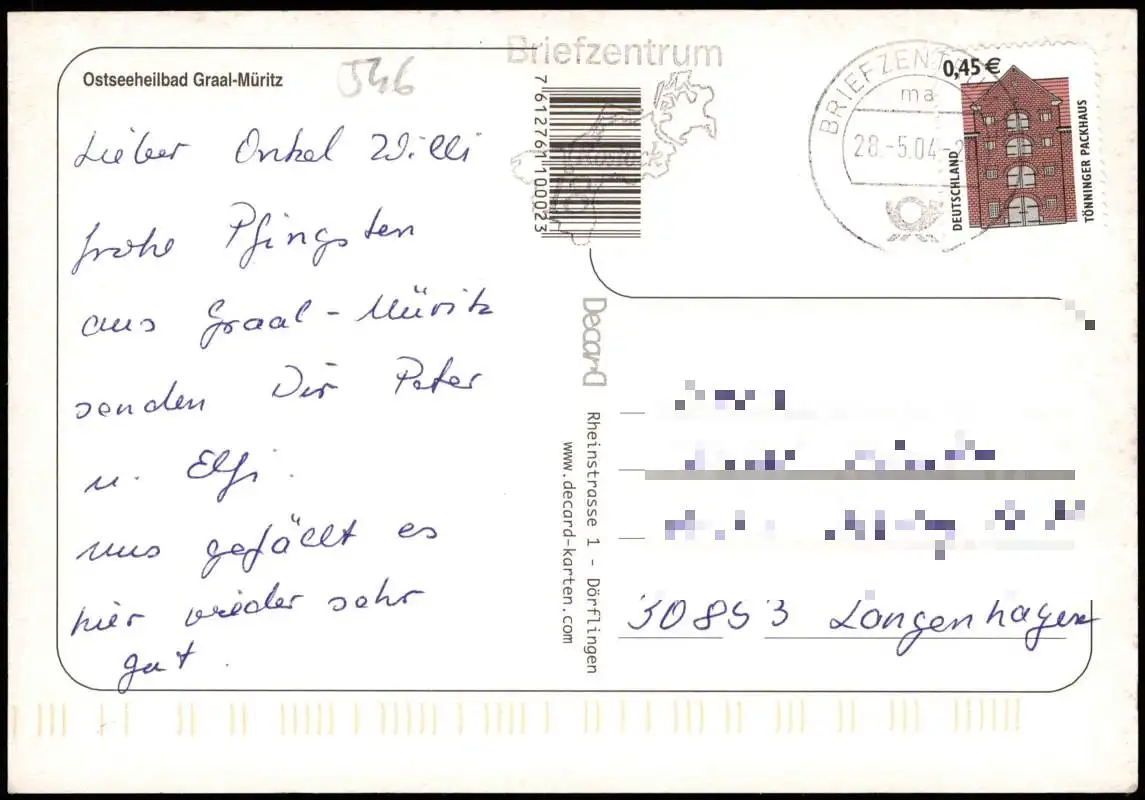 Ostseeheilbad Graal-Müritz
546
Lieber Onkel Willi
frohe Pfingsten
aus Graal-Müritz
senden Dir Peter
u. Elfi.
uns gefällt es
hier wieder sehr
gut.
Briefzentrum
7612761100023
Rostock
BRIEFZENTRUM
ma
28.-5.04-2
0,45 €
DEUTSCHLAND
TÖNNINGER PACKHAUS
Decard
Rheinstrasse 1 - Dörflingen
www.decard-karten.com
30853 Langenhagen